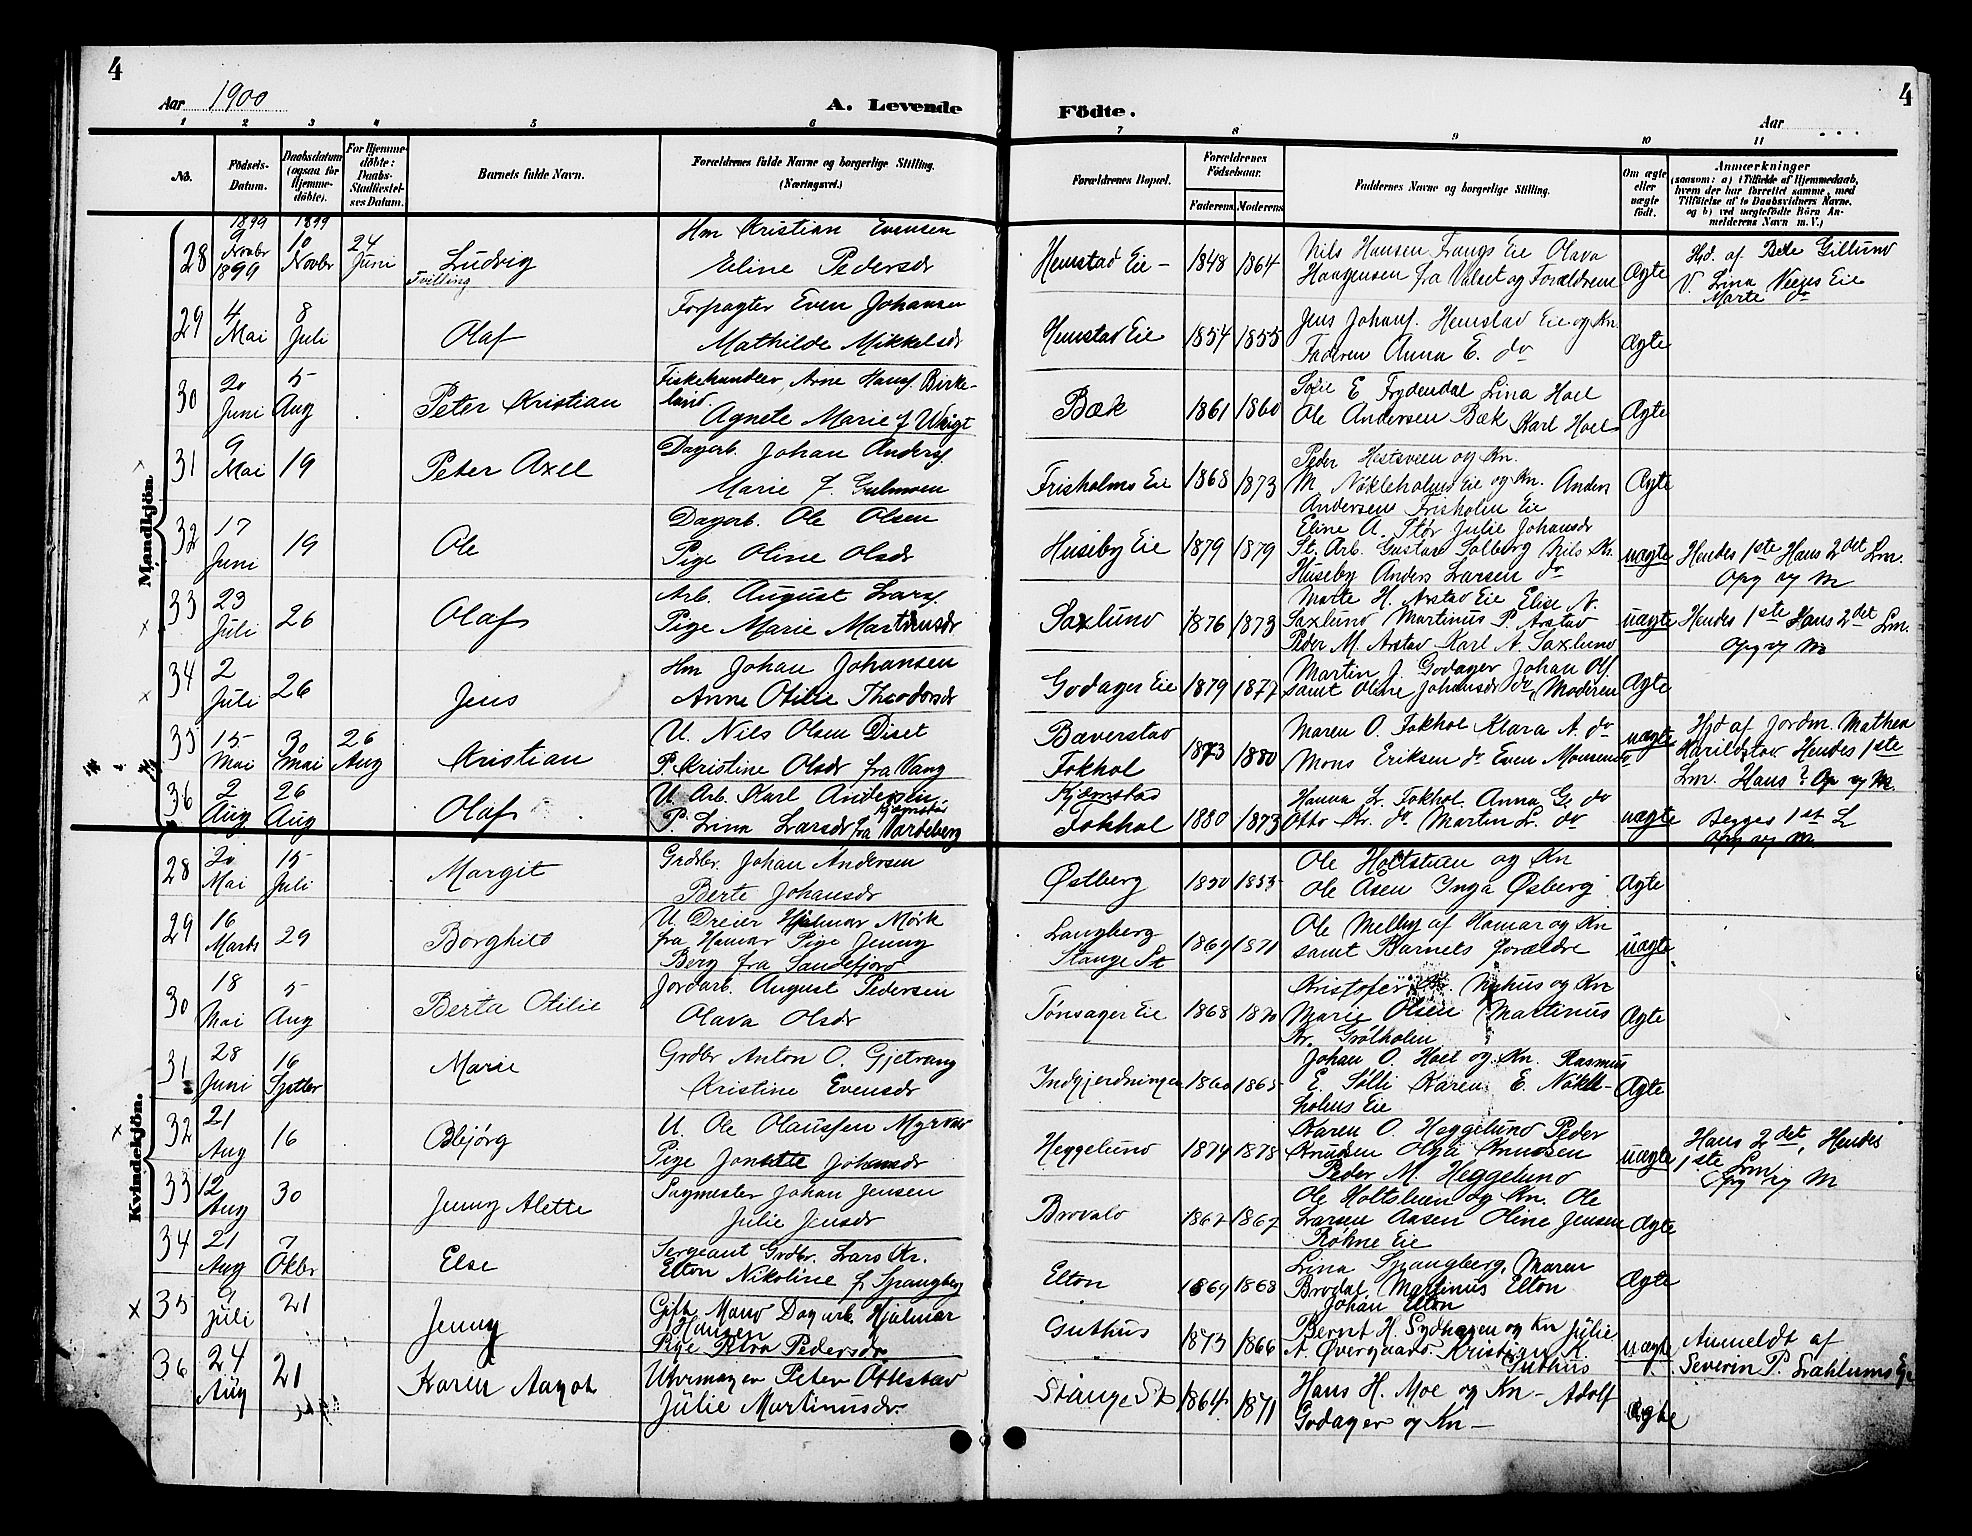 4
Aar 1900
A. Levende
Födte.
Aar ...
4
1 2 3 4 5 6 7 8 9 10 11
No.
Födsels-Datum.
Daabsdatum (ogsaa for Hjemmedöbte).
For Hjemmedöbte: Daabs-Stadfæstelses Datum.
Barnets fulde Navn.
Forældrenes fulde Navne og borgerlige Stilling. (Næringsvei.)
Forældrenes Bopæl.
Forældrenes Födselsaar.
Faderens. Moderens.
Faddernes Navne og borgerlige Stilling.
Om ægte eller uægte födt.
Anmærkninger
(saasom: a) i Tilfælde af Hjemmedaab, hvem der har forrettet samme, med Tilföielse af to Daabsvidners Navne. og b) ved uægtefödte Börn Anmelderens Navn m. V.)
Mandkjön.
28 1899 9 Novbr 1899 1899 10 Novbr 24 Juni Ludvig Tvilling
Hm Kristian Evensen
Eline Pedersdr
Hemstad Eie - 1848 1864
Nils Hansen Frangs Eie Olava
Haagensen fra Valset og Forældrene
Ægte
Hjd. af Bele Gillund
V. Lina Veens Eie
Marte do
29 4 Mai 8 Juli Olaf
Forpagter Even Johansen
Mathilde Mikkelsdr
Hemstad Eie 1854 1855
Jens Johans. Hemstad Eie og Kn
Faderen Anna E. do
Ægte
30 20 Juni 5 Aug Peter Kristian
Fiskehandler Arne Hans. Birkeland.
Agnete Marie f
Bæk 1861 1860
Sofie E Frydendal Lina Hoel
Ole Andersen Bæk Karl Hoel
Ægte
31 9 Mai 19 Peter Axel
Dagarb. Johan Anders.
Marie f. Gulmoen
Frisholms Eie 1868 1873
Peder Hestsveen og Kn.
M. Nökleholms Eie og Kn. Anders
Andersens Frisholm Eie
Ægte
32 17 Juni 19 Ole
Dagarb. Ole Olsen
Pige Oline Olsdr
Huseby Eie 1879 1879
Eline A. Stör Julie Johansdr
St. Arb. Gustav Solberg Nils Kr.
Huseby Anders Larsen do
uægte
Hendes 1ste Hans 2det Lm.
Opg og M
33 23 Juli 26 Olaf
Arb. August Lars.
Pige Marie Martinusdr
Saxlund 1876 1873
Marte H. Arstad Eie Elise N.
Saxlund Martinus P. Arstad
Peder M. Arstad Karl A. Saxlund
uægte
Hendes 1ste Hans 2det Lm.
Opg og M
34 2 Juli 26 Jens
Hm Johan Johansen
Anne Otilie Theodorsdr
Godager Eie 1879 1877
Martin J. Godager Johan Ols.
samt Oline Johansdr do, Moderen
Ægte
35 15 Mai 30 Mai 26 Aug Kristian
U. Nils Olsen Diset
P. Kristine Olsdr fra Vang
Bæverstad
Fokhol 1873 1880
Maren O. Fokhol Klara A. do
Mons Eriksen do Even Monsen do
uægte
Hjd af Jordm. Mathea
Harildstad Hendes 1ste
Lm. Hans ? Op og M.
36 2 Aug 26 Aug Olaf
U Arb. Karl Andersen Kjemstad
P. Lina Larsdr fra Vardeberg
Kjemstad
Fokhol 1880 1873
Hanna L. Fokhol Anna G. do
Otto Kr. do Martin L. do
uægte
Begges 1st L
Opg og M
Kvindekjön.
28 20 Mai 15 Juli Margit
Grdbr. Johan Andersen
Berte Johansdr
Östberg 1850 1853
Ole Holtsteen og Kn
Ole Asen Inga Ösberg
Ægte
29 16 Marts 29 Borghild
U. Dreier Hjalmar Mörk
fra Hamar Pige Jenny
Berg fra Sandefjord
Langberg
Stange St 1869 1871
Ole Melby af Hamar og Kn
samt Barnets Forældre
uægte
30 18 Mai 5 Aug Berta Otilie
Jordarb. August Pedersen
Olava Olsdr
Tönsager Eie 1868 1870
Kristofer Nyhus og Kn
Marie Olsen Martinus
Kr. Grötholm
Ægte
31 28 Juni 16 Septbr Marie
Grdbr Anton O. Gjetvang
Kristine Evensdr
Indgjerdningen 1860 1865
Johan O. Hoel og Kn. Rasmus
E. Sölli Karen E. Nökleholms Eie
Ægte
32 21 Aug 16 Obbjörg
U. Ole Olaussen Myrvold
Pige Jonette Johansdr
Heggelund 1874 1878
Karen O. Heggelund Peder
Knudsen Olga Knudsen
Peder M. Heggelund
uægte
Hans 2det, Hendes
1ste Lm
Opg og M
33 12 Aug 30 Jenny Alette
Sagmester Johan Jensen
Julie Jensdr
Brovold 1867 1867
Ole Holtsteen og Kn. Ole
Larsen Aasen Oline Jensen
Röhne Eie
Ægte
34 21 Aug 7 Oktbr Else
Sergeant Grdbr. Lars Kr.
Elton Nikoline f. Spangberg
Elton 1869 1868
Lina Spangberg, Maren
Brodal, Martinus Elton
Johan Elton
Ægte
35 9 Juli 21 Jenny
Gift Mand Dagarb. Hjalmar
Hansen
Pige Petra Pedersdr
Guthus 1873 1866
Bernt H. Sydhagen og Kn Julie
A. Övergaard. Kristian K.
Guthus
uægte
Anmeldt af
Severin P. Eie
36 24 Aug 21 Karen Aagot
Uhrmager Peter Ottestad
Julie Martinusdr.
Stange St 1864 1871
Hans H. Moe og Kn - Adolf
Godager og Kn -
Ægte